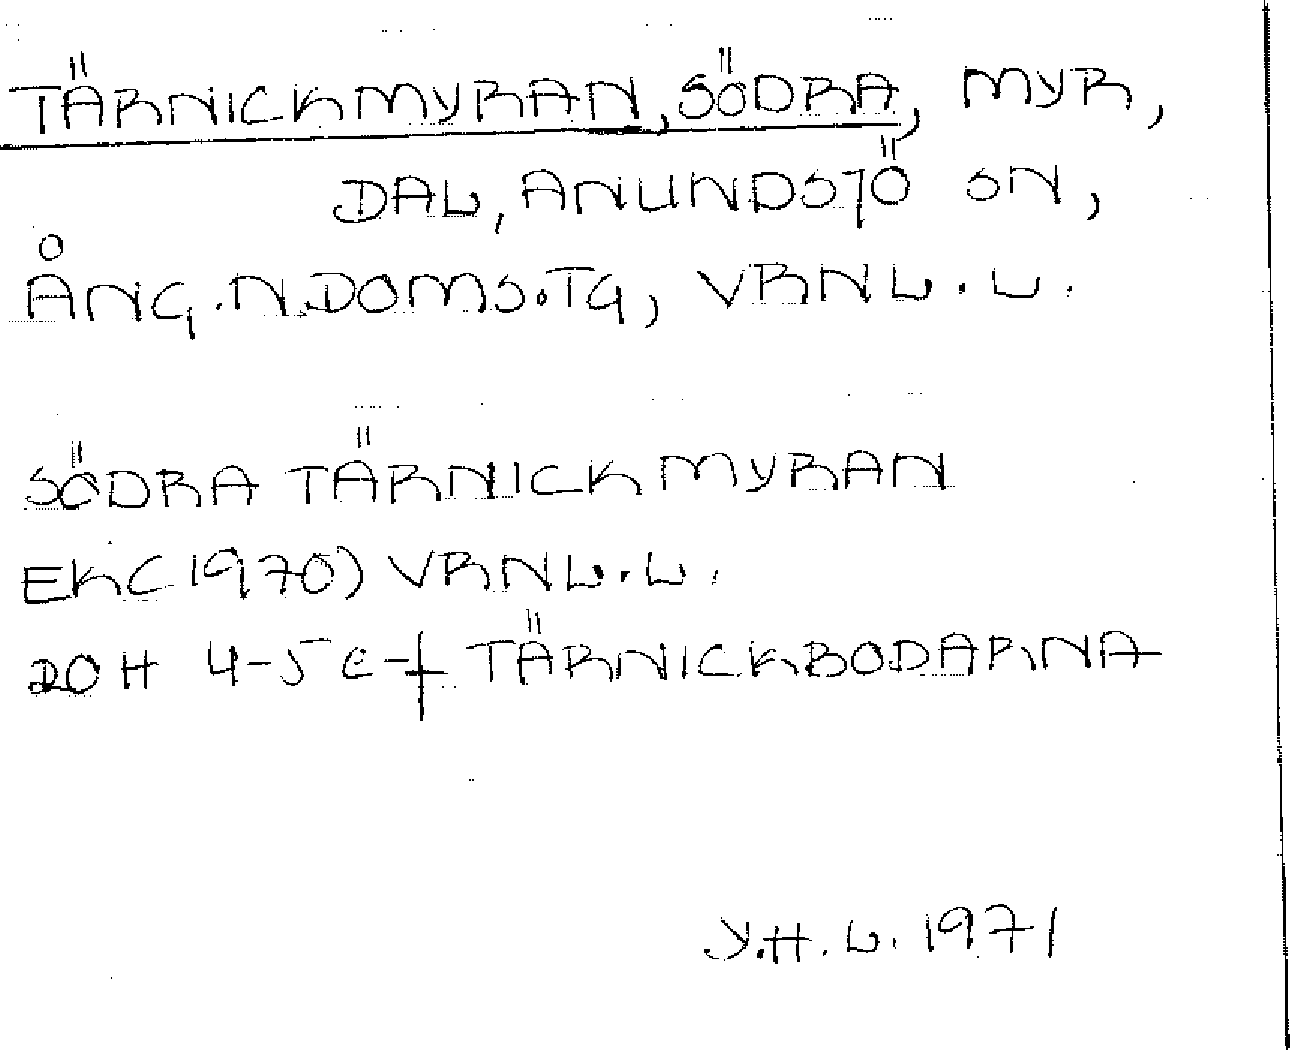 TÄRNICKMYRAN, SÖDRA, MYR,
DAL, ANUNDSJÖ SN,
ÅNG. N. DOMS. TG, VRNL. L.
SÖDRA TÄRNICKMYRAN
EK (1970) VRNL. L.
20H 4-5 e-f TÄRNICKBODARNA
Y.H.L. 1971